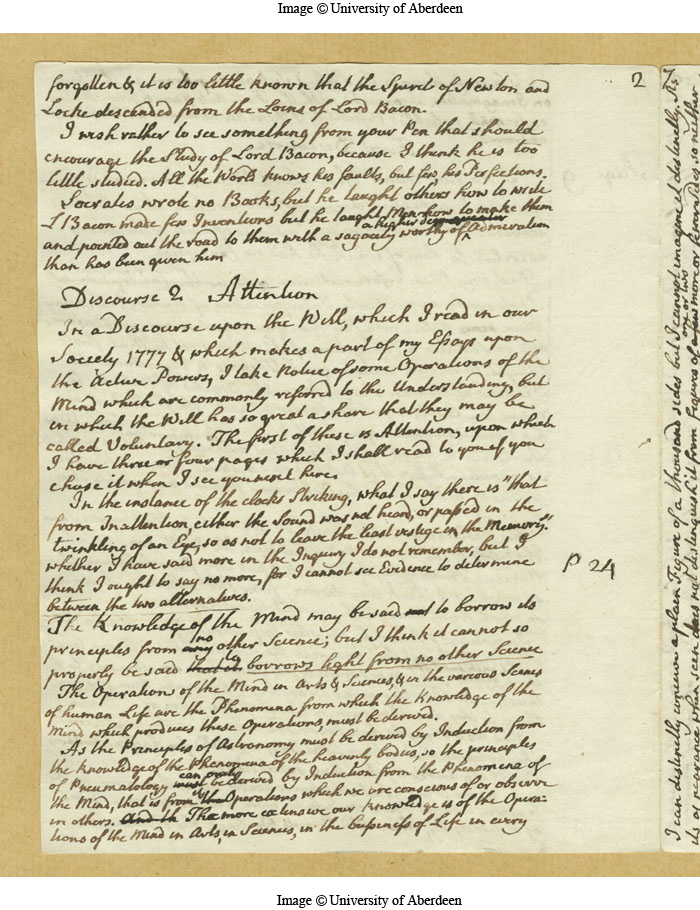 Image © University of Aberdeen
2
forgotten & it is too little known that the Spirit of Newton and
Locke descended from the Loins of Lord Bacon.
I wish rather to see something from your Pen that should
encourage the Study of Lord Bacon, because I think he is too
little studied. All the World knows his faults, but few his Perfections.
Socrates wrote no Books, but he taught others how to write
L Bacon made few Inventions but he taught Men how to make them
a higher
and pointed out the road to them with a sagacity worthy of ^ Admiration
than has been given him
Discourse 2 Attention
In a Discourse upon the Will, which I read in our
Society 1777 & which makes a part of my Essays upon
the Active Powers, I take Notice of some Operations of the
Mind which are commonly referred to the Understanding, but
in which the Will has so great a share that they may be
called Voluntary. The first of these is Attention, upon which
I have three or four pages which I shall read to you if you
chuse it when I see you next here.
In the instance of the clocks Striking, what I say there is "that
from Inattention, either the Sound was not heard, or passed in the
twinkling of an Eye, so as not to leave the least vestige in the Memory."
whether I have said more in the Inquiry I do not remember, but I
think I ought to say no more, for I cannot see Evidence to determine
between the two alternatives.
P 24
The Knowledge of the Mind may be said not to borrow its
no
principles from any other Science; but I think it cannot so
properly be said that it borrows light from no other Science
The Operations of the Mind in Arts & Sciences, & in the various Scenes
of human Life are the Phenomena from which the Knowledge of the
Mind which produces these Operations, must be derived.
As the Principles of Astronomy must be derived by Induction from
the knowledge of the Phenomena of the heavenly bodies, so the principles
can only
of Pneumatology must be derived by Induction from the Phenomena of
the Mind, that is from the Operations which we are conscious of or observe
in others. And th The more extensive our knowledge is of the Opera-
tions of the Mind in Arts, in Sciences, in the business of Life in every
I can distinctly conceive a plain Figure of a thousand sides but I cannot imagine it distinctly. Its
one or two
its appearance when seen does not distinguish it from Figures of a few more or fewer sides is neither
Image © University of Aberdeen